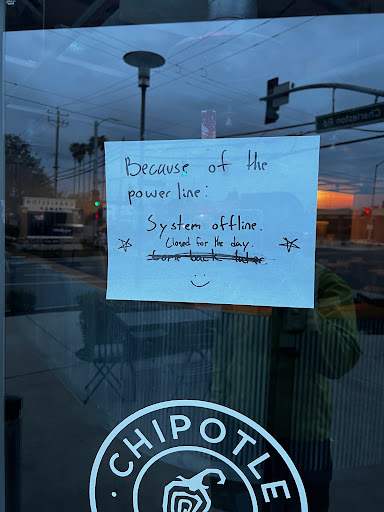 Charleston Rd
Because of the
power line:
System offline.
Closed for the day.
Come back later.
CHIPOTLE